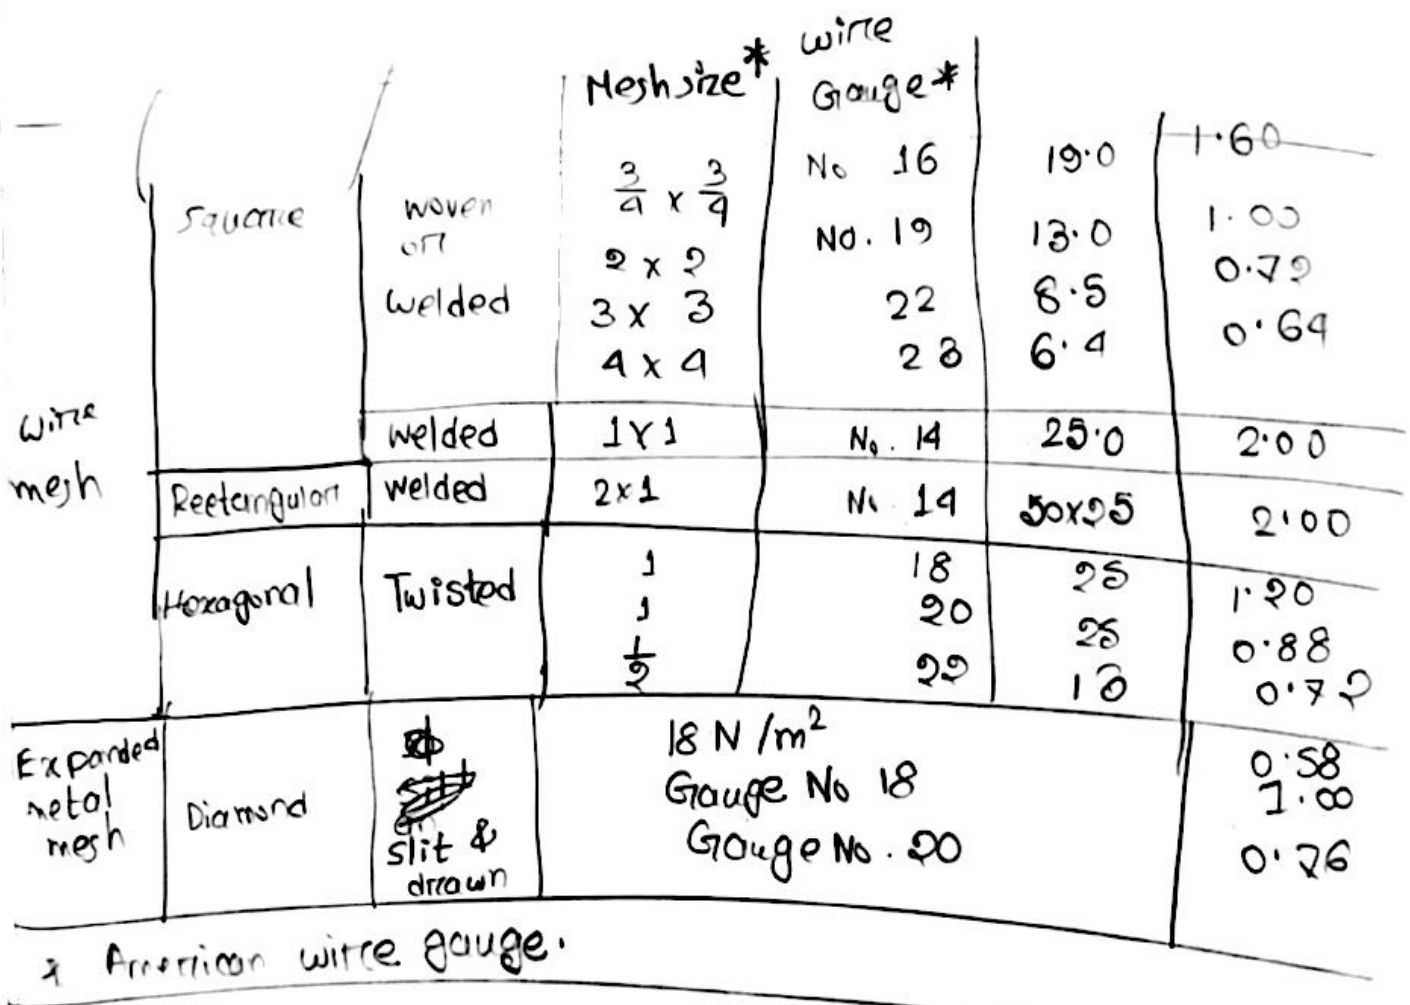 Mesh size* wire
Gauge*
Square woven 3/4 x 3/4 No 16 19.0 1.60
or 2 x 2 No. 19 13.0 1.00
welded 3 x 3 22 8.5 0.72
4 x 4 23 6.4 0.64
wire
mesh
welded 1x1 No. 14 25.0 2.00
Rectangular welded 2x1 No 14 50x25 2.00
Hexagonal Twisted 1 18 25 1.20
1 20 25 0.88
1/2 22 13 0.72
Expanded
metal
mesh
Diamond
slit &
drawn
18 N/m² 0.58
Gauge No 18 1.00
Gauge No. 20 0.76
* American wire gauge.